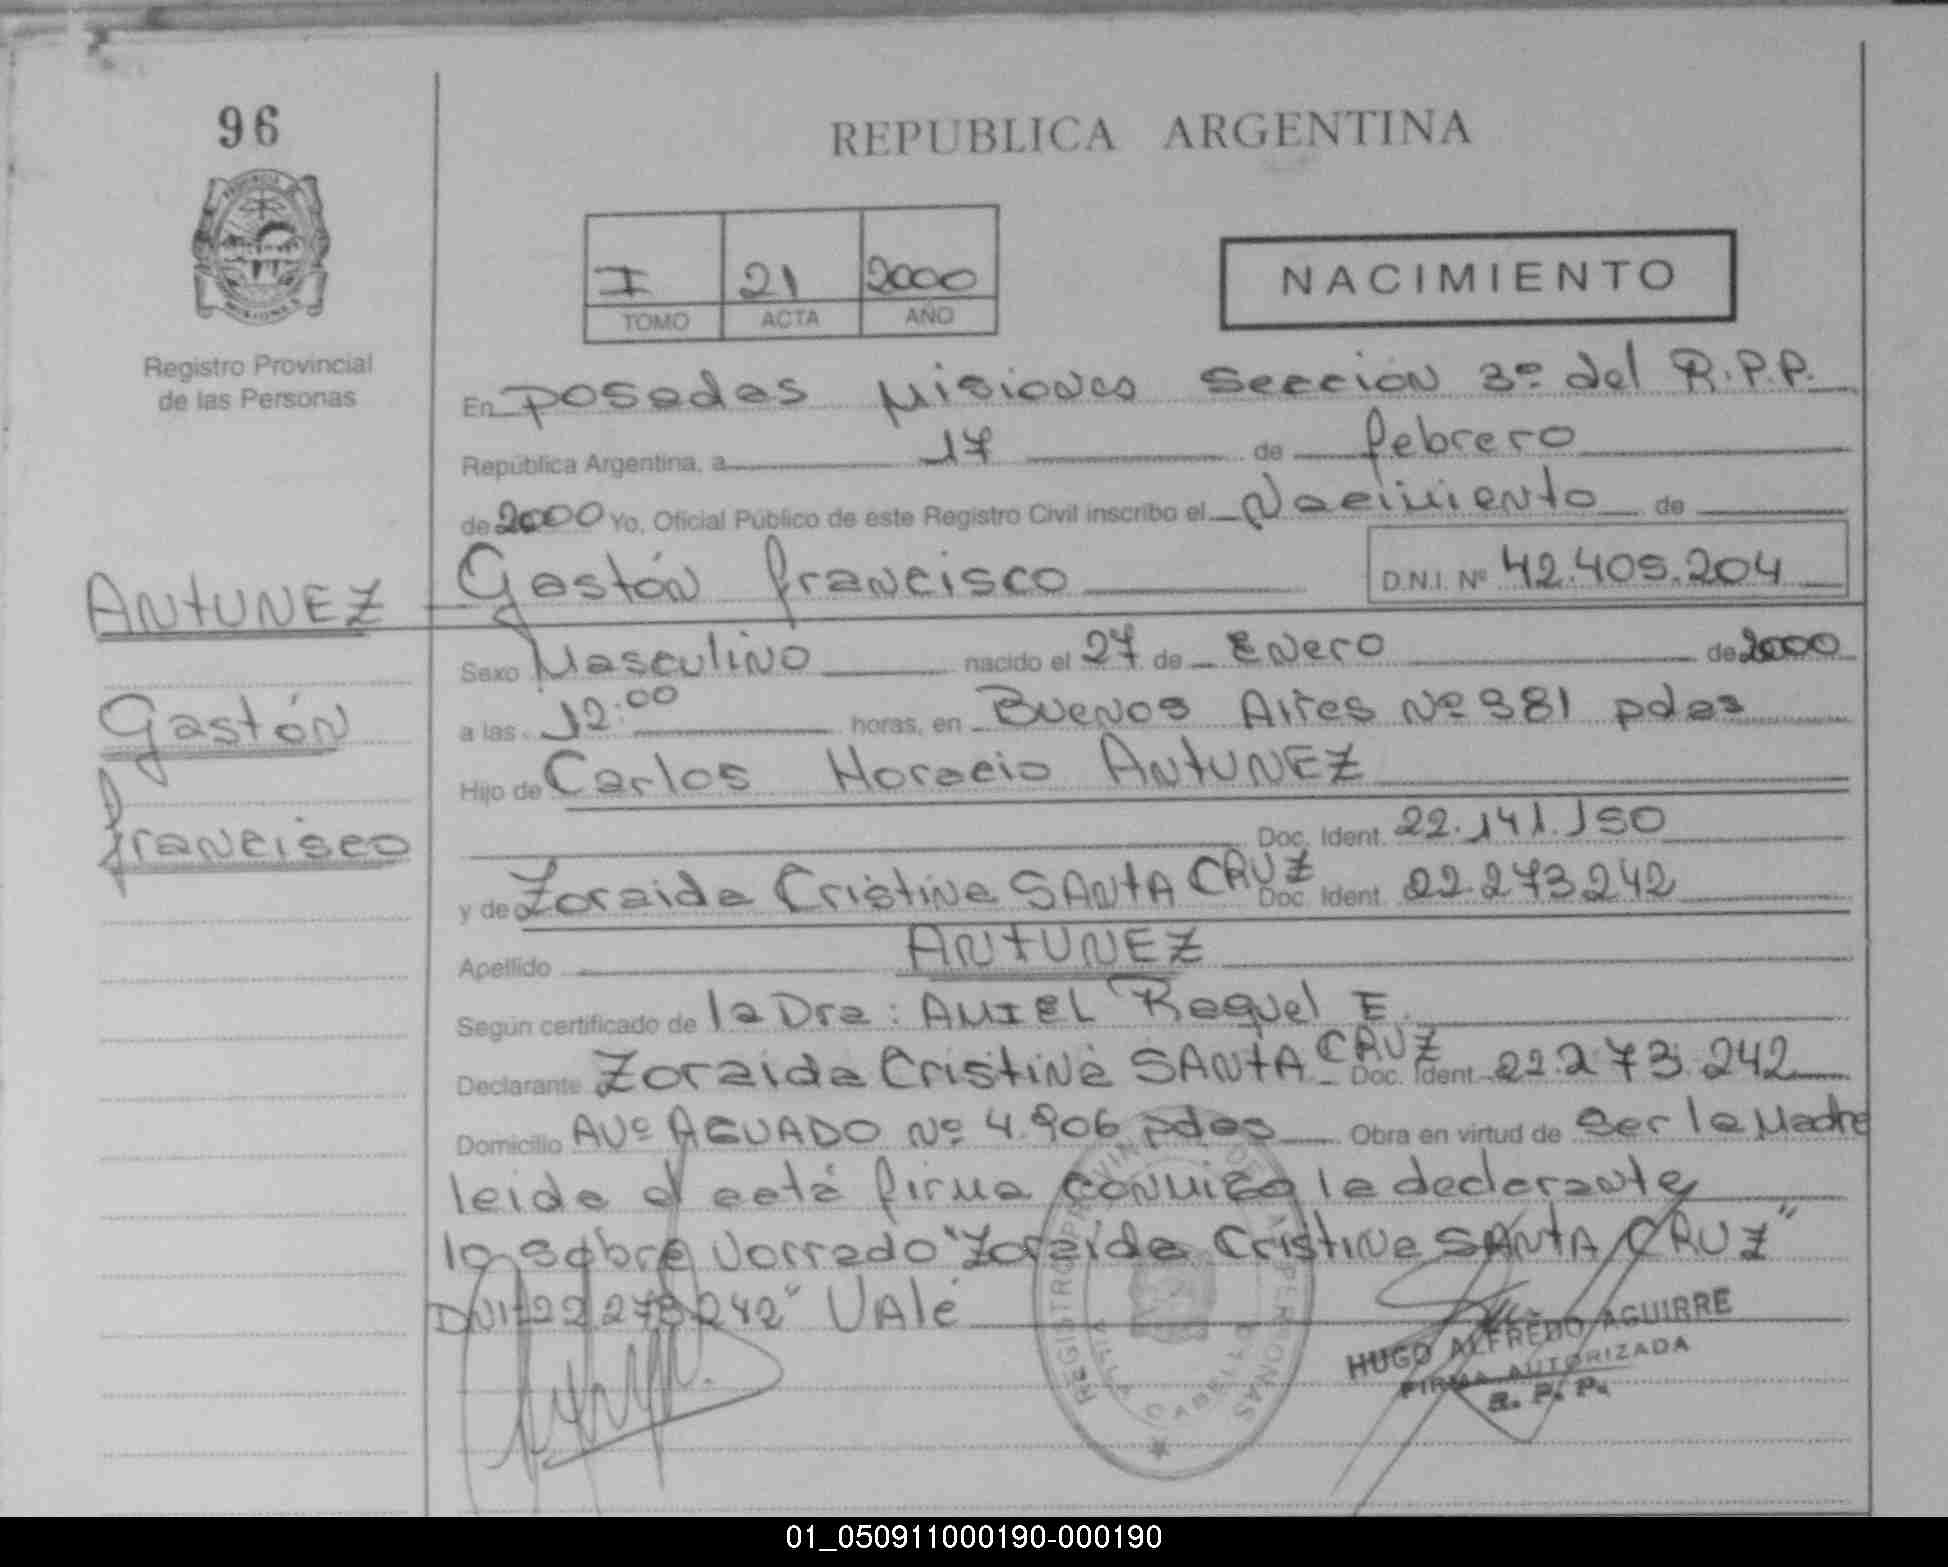 96
REPUBLICA ARGENTINA
Registro Provincial
de las Personas
I 21 2000
TOMO ACTA AÑO
NACIMIENTO
En Posadas Misiones Sección 3º del R.P.P.
República Argentina, a 17 de febrero
de 2000 Yo, Oficial Público de este Registro Civil inscribo el Nacimiento de
Gastón francisco D.N.I. Nº 42.405.204
ANtUNEZ
Gastón
francisco
Sexo Masculino nacido el 27 de Enero de 2000
a las 12:00 horas, en Buenos Aires Nº 381 pdas
Hijo de Carlos Horacio ANtUNEZ
Doc. Ident. 22.141.150
y de Zoraida Cristina SANtA CRUZ Doc. Ident. 22.273.242
Apellido ANtUNEZ
Según certificado de la Dra: AMIEL Raquel E.
Declarante Zoraida Cristina SANtA CRUZ Doc. Ident. 22.273.242
Domicilio AVº AGUADO Nº 4.906 pdas Obra en virtud de Ser la Madre
leida el acta firma conmigo la declarante
lo sobre vorrado "Zoraida Cristina SANtA CRUZ"
DNI-22.273.242" VAle
REGISTRO PROVINCIAL DE LAS PERSONAS
VILLA CABELLO
HUGO ALFREDO AGUIRRE
FIRMA AUTORIZADA
R. P. P.
01_050911000190-000190